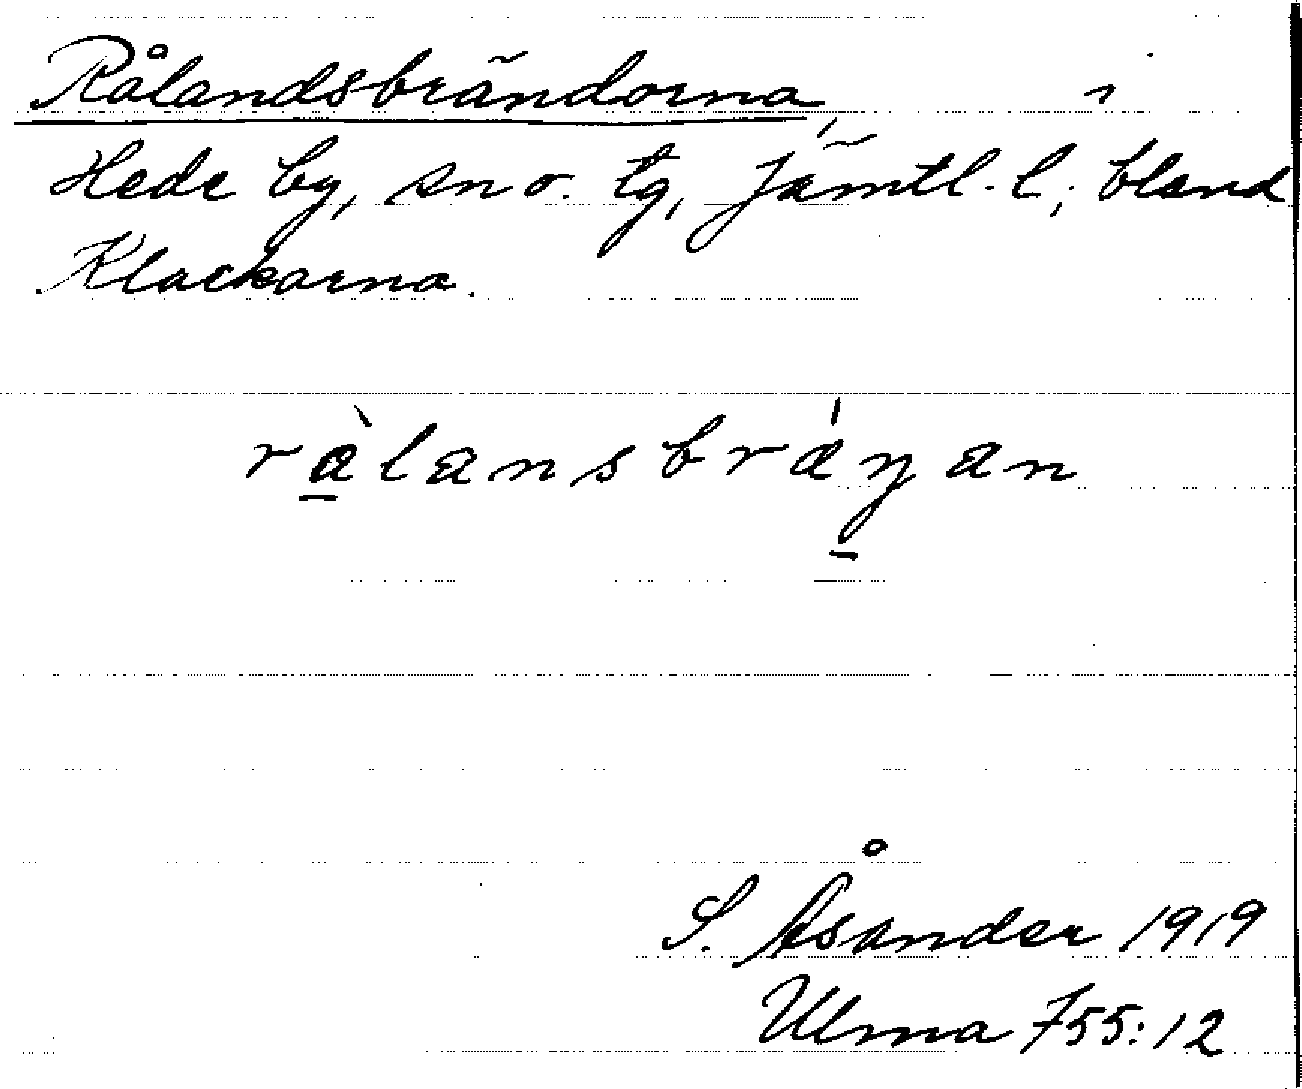 Rålandsbrändorna, i
Hede by, sn o. tg, Jämtl. l; bland
Klackarna.
ràlansbráŋan
S. Åsander 1919
Ulma 755:12